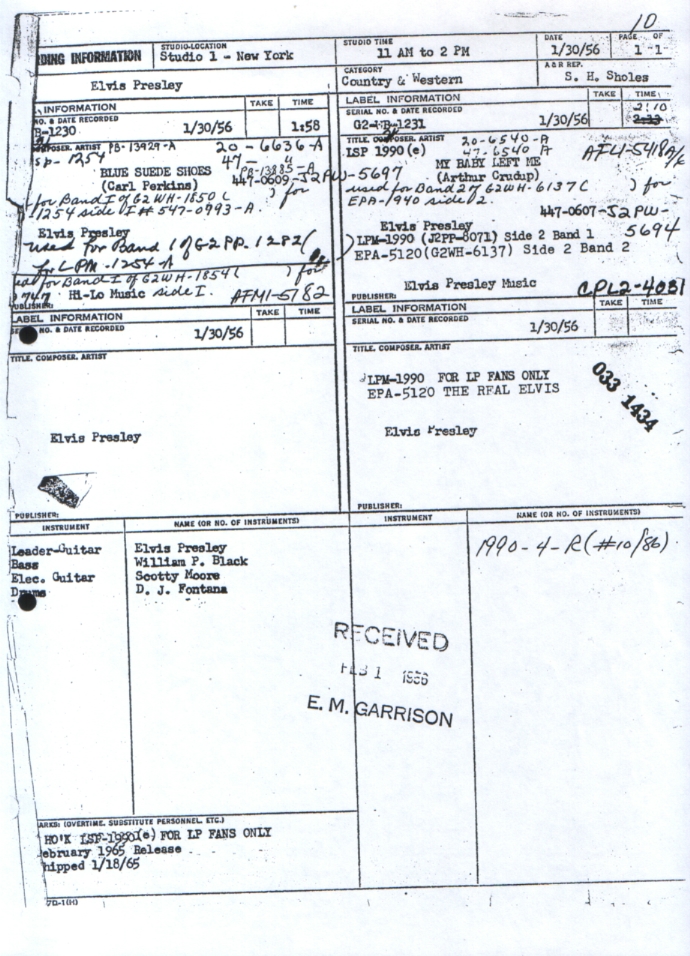 10
DING INFORMATION
STUDIO-LOCATION
Studio 1 - New York
STUDIO TIME
11 AM to 2 PM
DATE
1/30/56
PAGE OF
1 1
Elvis Presley
CATEGORY
Country & Western
A&R REP.
S. H. Sholes
INFORMATION
TAKE
TIME
NO. & DATE RECORDED
B-1230
1/30/56
1:58
LABEL INFORMATION
TAKE
TIME
SERIAL NO. & DATE RECORDED
1/30/56
2:10
2:13
POSER. ARTIST PB-13929-A
20-6636-A
SP-1254
47- "
PB-13885-A
BLUE SUEDE SHOES
447-0609-J2PW-5697
(Carl Perkins)
for Band I of G2WH-1850 ( ) for
1254 side I # 547-0993-A.
Elvis Presley
used for Band 1 of G2PP-1282 (
for LPM-1254-A
ed for Band I of G2WH-1854 ( ) for
747 Hi-Lo Music side I.
AFM1-5182
PUBLISHER:
TITLE. COMPOSER. ARTIST
20-6540-A
LSP 1990(e)
47-6540 A
AFL1-5418
MY BABY LEFT ME
(Arthur Crudup)
used for Band 2 of G2WH-6137 ( ) for
EPA-1940 side 2.
447-0607-J2PW-
5694
Elvis Presley
) LPM-1990 (J2PP-8071) Side 2 Band 1
EPA-5120(G2WH-6137) Side 2 Band 2
Elvis Presley Music
CPL2-4031
PUBLISHER:
LABEL INFORMATION
TAKE
TIME
NO. & DATE RECORDED
1/30/56
TITLE. COMPOSER. ARTIST
Elvis Presley
PUBLISHER:
LABEL INFORMATION
TAKE
TIME
SERIAL NO. & DATE RECORDED
1/30/56
TITLE. COMPOSER. ARTIST
LPM-1990 FOR LP FANS ONLY
EPA-5120 THE REAL ELVIS
033 1434
Elvis Presley
PUBLISHER:
INSTRUMENT
NAME (OR NO. OF INSTRUMENTS)
INSTRUMENT
NAME (OR NO. OF INSTRUMENTS)
Leader-Guitar
Elvis Presley
Bass
William P. Black
Elec. Guitar
Scotty Moore
Drums
D. J. Fontana
1990-4-R (#10/86)
RECEIVED
FEB 1 1956
E. M. GARRISON
ARKS: (OVERTIME, SUBSTITUTE PERSONNEL, ETC.)
LSP-1990(e) FOR LP FANS ONLY
ebruary 1965 Release
hipped 1/18/65